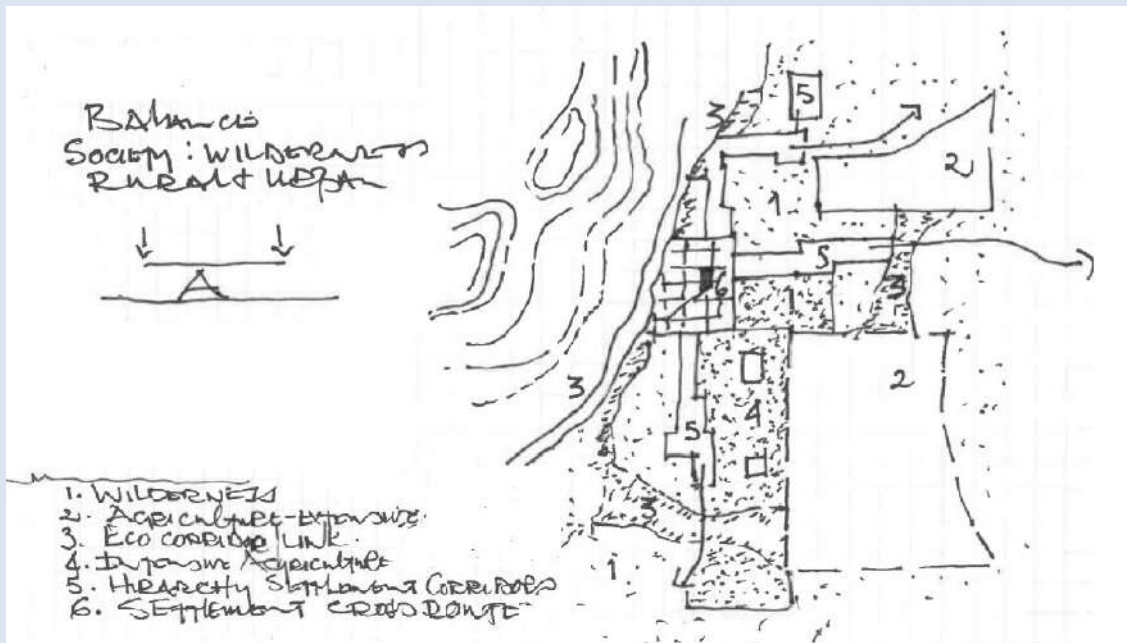 BALANCE
SOCIETY: WILDERNESS
RURAL & URBAN
1. WILDERNESS
2. AGRICULTURE-EXTENSIVE
3. ECO CORRIDOR LINK.
4. INTENSIVE AGRICULTURE
5. HIRARCHY SETTLEMENT CORRIDORS
6. SETTLEMENT CROSSROUTE
3
5
2
1
5
6
3
3
2
4
5
3
1